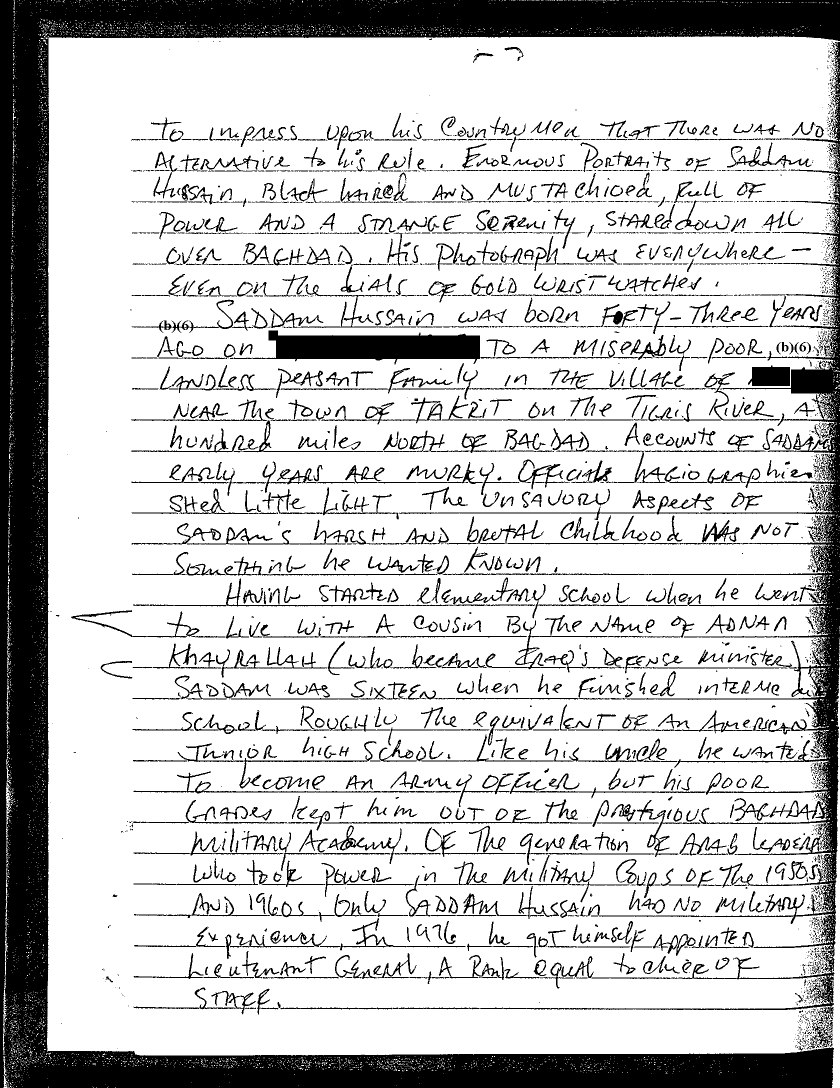 to impress upon his Countrymen that there was no
Alternative to his Rule. Enormous Portraits of Saddam
Hussain, Black haired and mustachioed, full of
Power and a strange Serenity, stared down all
over Baghdad. His Photograph was everywhere –
even on the dials of gold wristwatches.
(b)(6) Saddam Hussain was born Forty-Three Years
Ago on to a miserably poor, (b)(6)
landless peasant Family in the Village of
near the town of Takrit on the Tigris River, a
hundred miles north of Bagdad. Accounts of Saddams
early years are murky. Officials hagiographies
shed little light. The unsavory Aspects of
Saddam's harsh and brutal Childhood was not
Something he wanted known.
Having started elementary school when he went
to live with a cousin by the name of Adnan
Khayrallah (who became Iraq's Defense minister),
Saddam was sixteen when he finished
School, Roughly the equivalent of an American
Junior high School. Like his uncle, he wanted
to become an Army Officer, but his poor
Grades kept him out of the prestigious Baghdad
military Academy. Of the generation of Arab leaders
who took power in the military Coups of the 1950s
and 1960s, Only Saddam Hussain had no miletary
Experience, In 1976, he got himself appointed
Lieutenant General, a Rank equal to chief of
Staff.